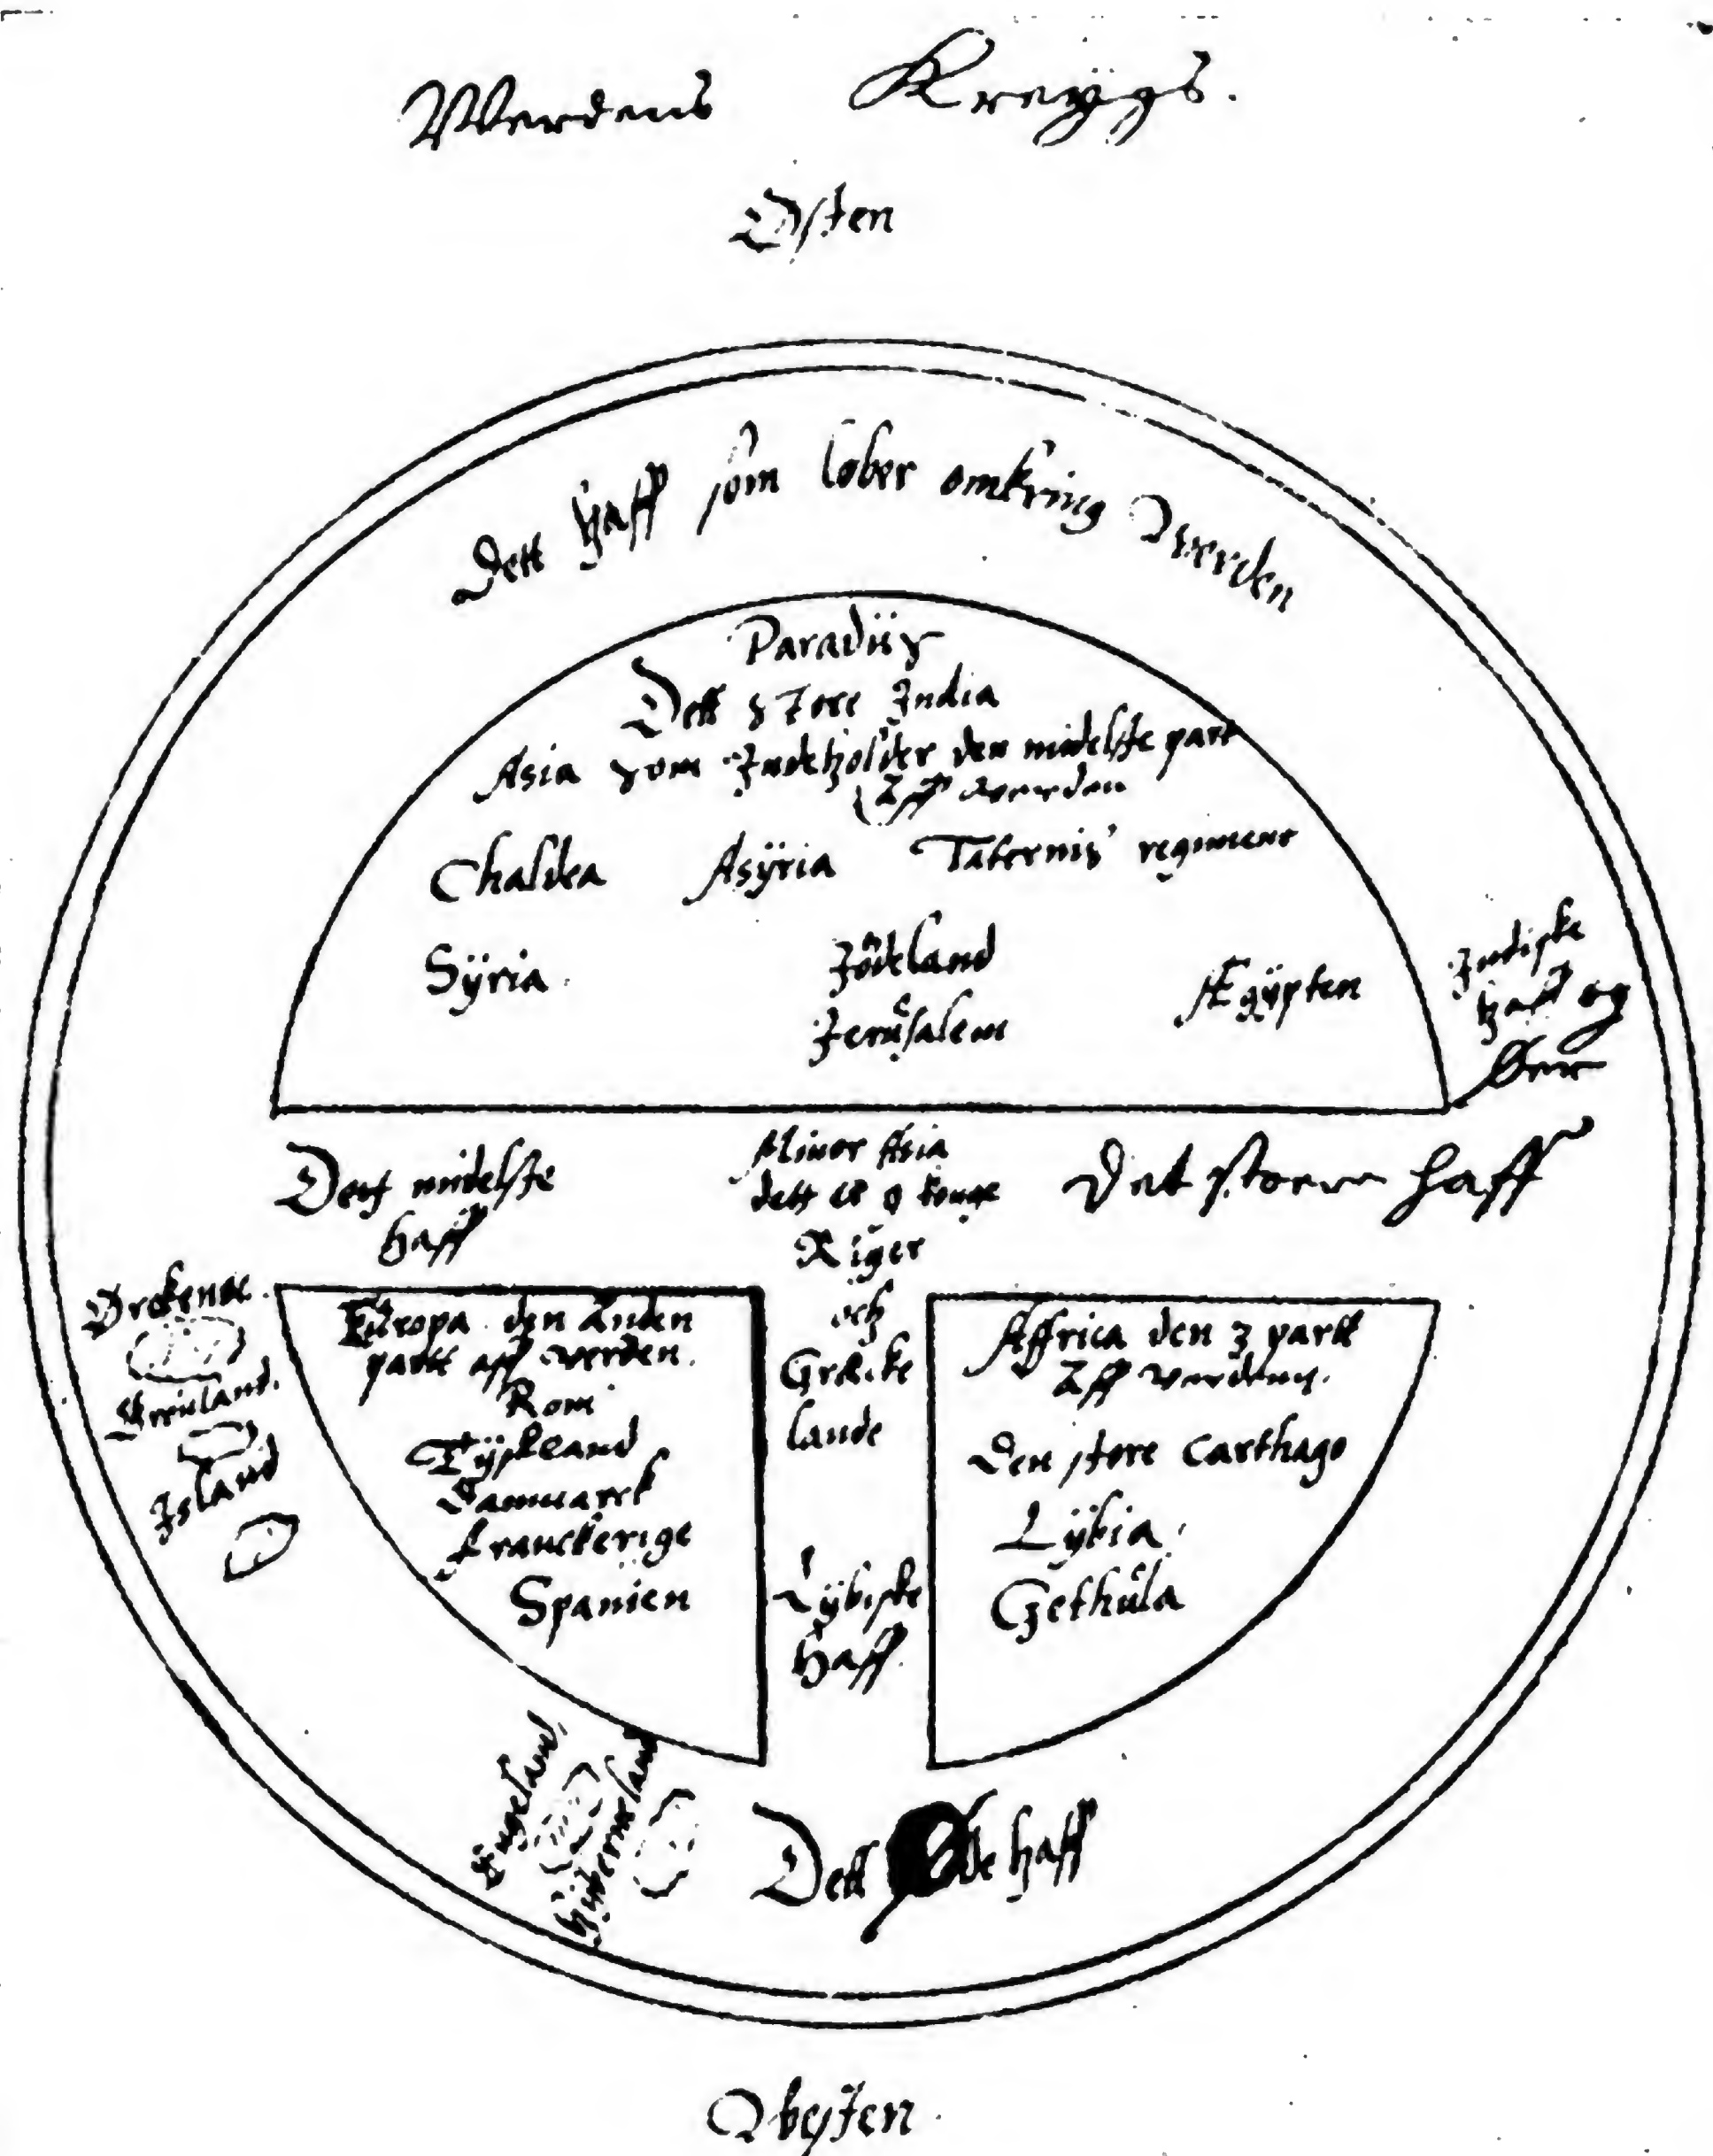 Werdens Kreÿgs.
Østen
Dett haff som løber omkring Werden
Paradiis
Dett store India
Asia som Indeholder den midelste part
aff werden
Chaldea Asÿria Taternis regiment
Sÿria. Jødeland Ægÿpten
Jerusalem
Indiske
haff og
Øer
Dett midelste
haff
Minor Asia
dett er 9 konge
Riger
och
Græke
lande
Dat storre haff
Orckenøe.
Grønland.
Island
Europa den Anden
partt aff werden.
Rom
Tÿskland
Danmarck
franckerige
Spanien
Affrica den 3 partt
Aff werdens.
Den store Carthago
Lÿbia
Gethula
Lÿbiske
Haff.
Engeland.
Hiberniland
Dett Øde haff
Vesten.